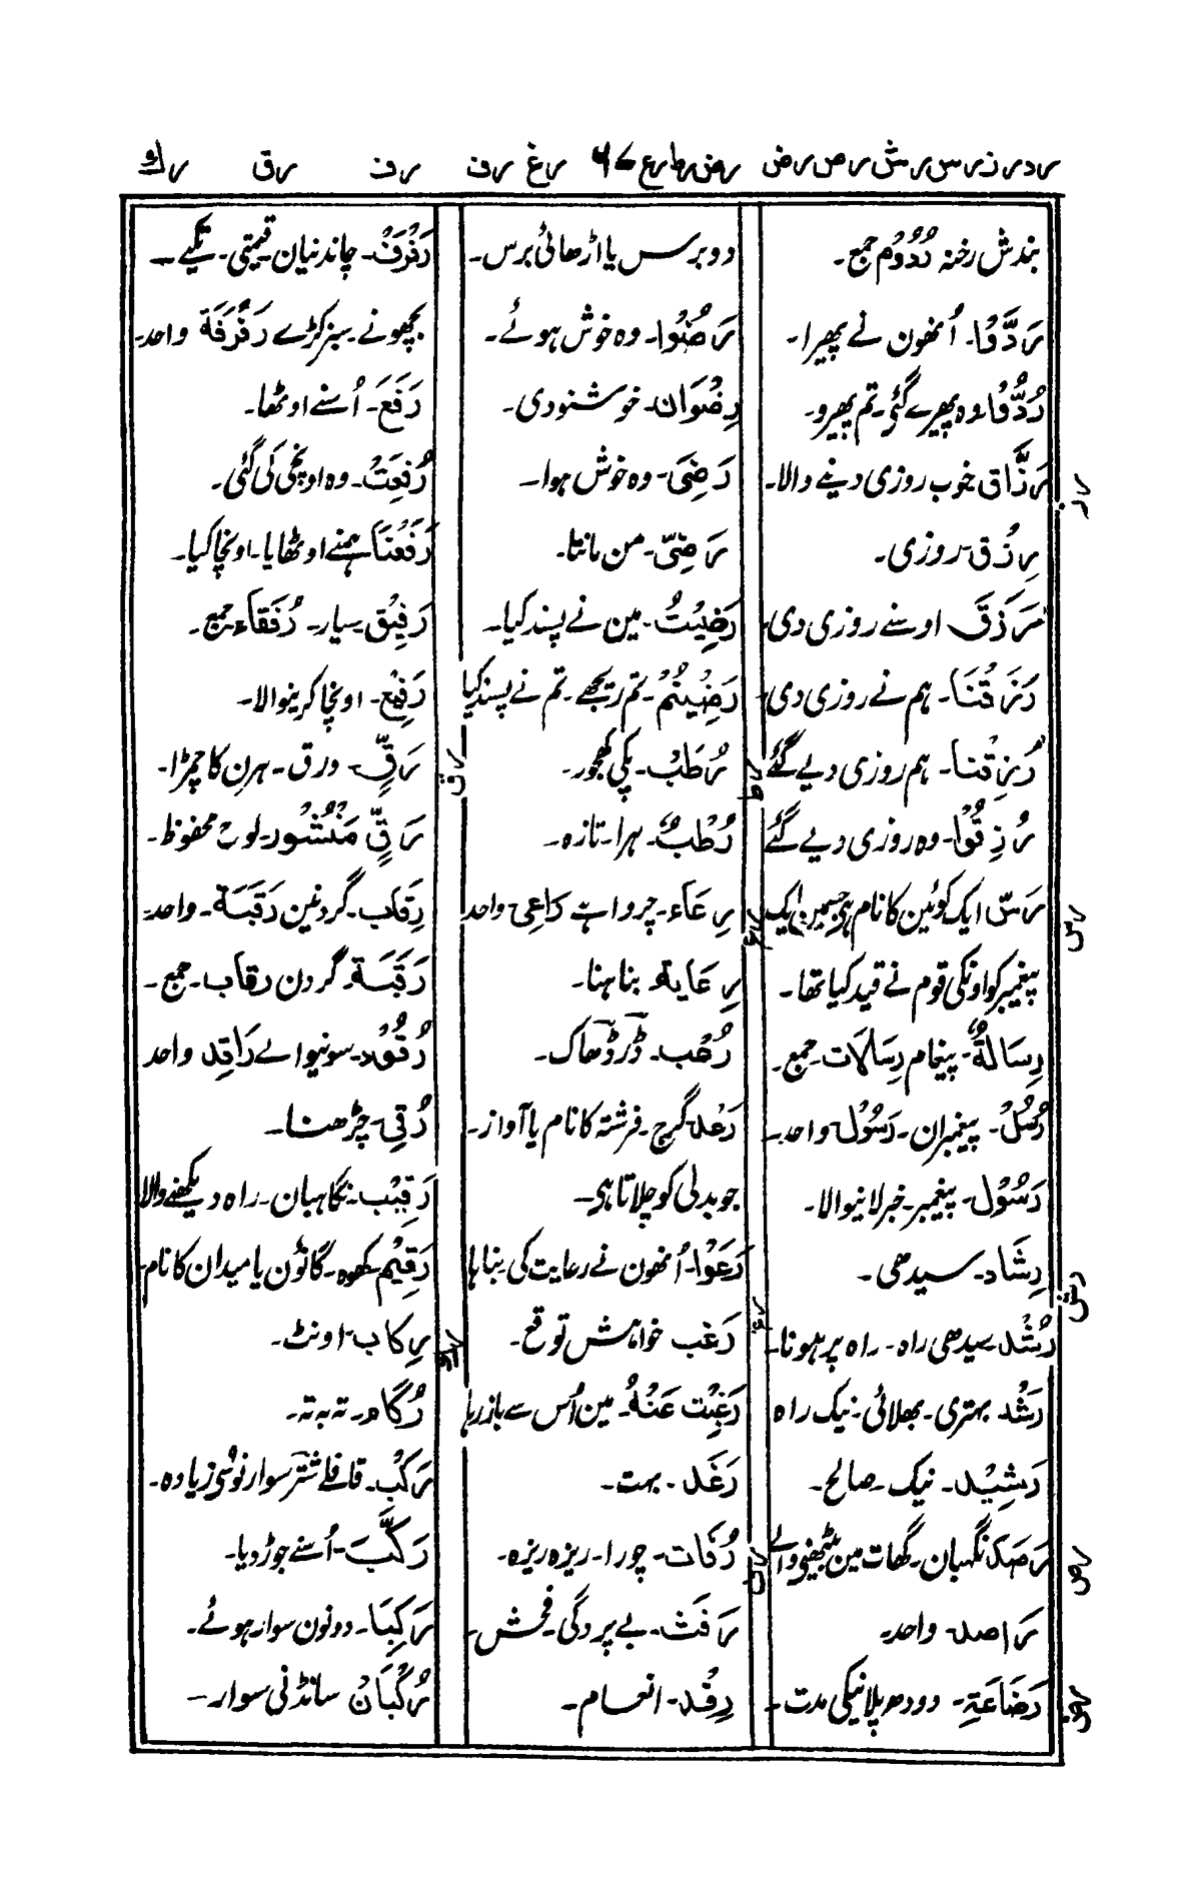 ر د ر ز ر س ر ش ر ص ر ض ر ض ر ط ر ع ۶۷ ر غ ر ف ر ف ر ق ر ك
بندش رخنہ رُدُوْم جمع۔
رَدَّوْا۔ اُنھون نے پھیرا۔
رُدُّوْا وہ پھیرے گئے۔ تم پھیرو۔
ر ز
رَزَّاق خوب روزی دینے والا۔
رِزْق۔ روزی۔
رَزَقَ اوسنے روزی دی۔
رَزَقْنَا۔ ہم نے روزی دی۔
رُزِقْنَا۔ ہم روزی دیے گئے
رُزِقُوْا۔ وہ روزی دیے گئے
ر س
رَسّ ایک کوئین کا نام ہی جسمین ایک
پیغمبر کو اونکی قوم نے قید کیا تھا۔
رِسَالَةٌ۔ پیغام رِسَالَات۔ جمع۔
رُسُلْ۔ پیغمبران۔ رَسُوْل۔ واحد۔
رَسُوْل۔ پیغمبر۔ خبر لانیوالا۔
ر ش
رِشَاد۔ سیدھی۔
رُشْد سیدھی راہ۔ راہ پر ہونا۔
رَشْد بہتری۔ بھلائی۔ نیک راہ
رَشِيْد۔ نیک۔ صالح۔
ر ص
رَصَد نگہبان۔ گھات مین بیٹھنے والے
رَاصد۔ واحد۔
ر ض
رَضَاعَةِ۔ دودھ پلانیکی مدت۔
دو برس یا اڑھائی برس۔
رَضُوْا۔ وہ خوش ہوئے۔
رِضْوَان۔ خوشنودی۔
رَضِیَ۔ وہ خوش ہوا۔
رَضِیّ۔ من مانتا۔
رَضِيْتُ۔ مین نے پسند کیا۔
رَضِيْتُمْ۔ تم ریجھے۔ تم نے پسند کیا
ر ط
رُطَبْ۔ پکی کھجور۔
رُطْبٌ۔ ہرا۔ تازہ۔
ر ع
رِعَآء۔ چرواہے رَاعِی واحد
رِعَایة۔ بناہنا۔
رُعْب۔ ڈر ڈھاک۔
رَعْد۔ گرج۔ فرشتہ کا نام یا آواز۔
جو بدلی کو چلاتا ہی۔
رَعَوْا۔ اُنھون نے رعایت کی بناہا
ر غ
رَغَب خواہش توقع۔
رَغِبْت عَنْهُ۔ مین اُس سے باز رہا
رَغَد۔ بہت۔
ر ف
رُفَات۔ چورا۔ ریزہ ریزہ۔
رَفَث۔ بے پردگی۔ فحش۔
رِفْد۔ انعام۔
رَفْرَفْ۔ چاندنیان۔ قیمتی۔ تکیے۔
بچھونے۔ سبز کپڑے رَفْرَفَة واحد۔
رَفَعَ۔ اُسنے اوٹھا۔
رُفِعَتْ۔ وہ اونچی کی گئی۔
رَفَعْنَا ہمنے اوٹھایا۔ اونچا کیا۔
رَفِيْق۔ یار۔ رُفَقَاء جمع۔
رَفِيْع۔ اونچا کرنیوالا۔
ر ق
رَقٍّ۔ ورق۔ ہرن کا چمڑا۔
رَقٍّ مَنْشُور۔ لوح محفوظ۔
رِقَاب۔ گردنین رَقَبَة۔ واحد۔
رَقَبَة۔ گردن رقاب۔ جمع۔
رُقُوْد۔ سونیوالے رَاقِد واحد
رُقِیّ۔ چڑھنا۔
رَقِيْب۔ نگاہبان۔ راہ دیکھنے والا
رَقِيْم۔ کھوہ۔ گانوٗن یا میدان کا نام۔
ر ك
رِکاب۔ اونٹ۔
رُکَام۔ تہ بہ تہ۔
رَکْب۔ قافلے شتر سوار نوسی زیادہ۔
رَکَّبَ۔ اُسنے جوڑ دیا۔
رَکِبَا۔ دونون سوار ہوئے۔
رُکْبَان سانڈنی سوار۔